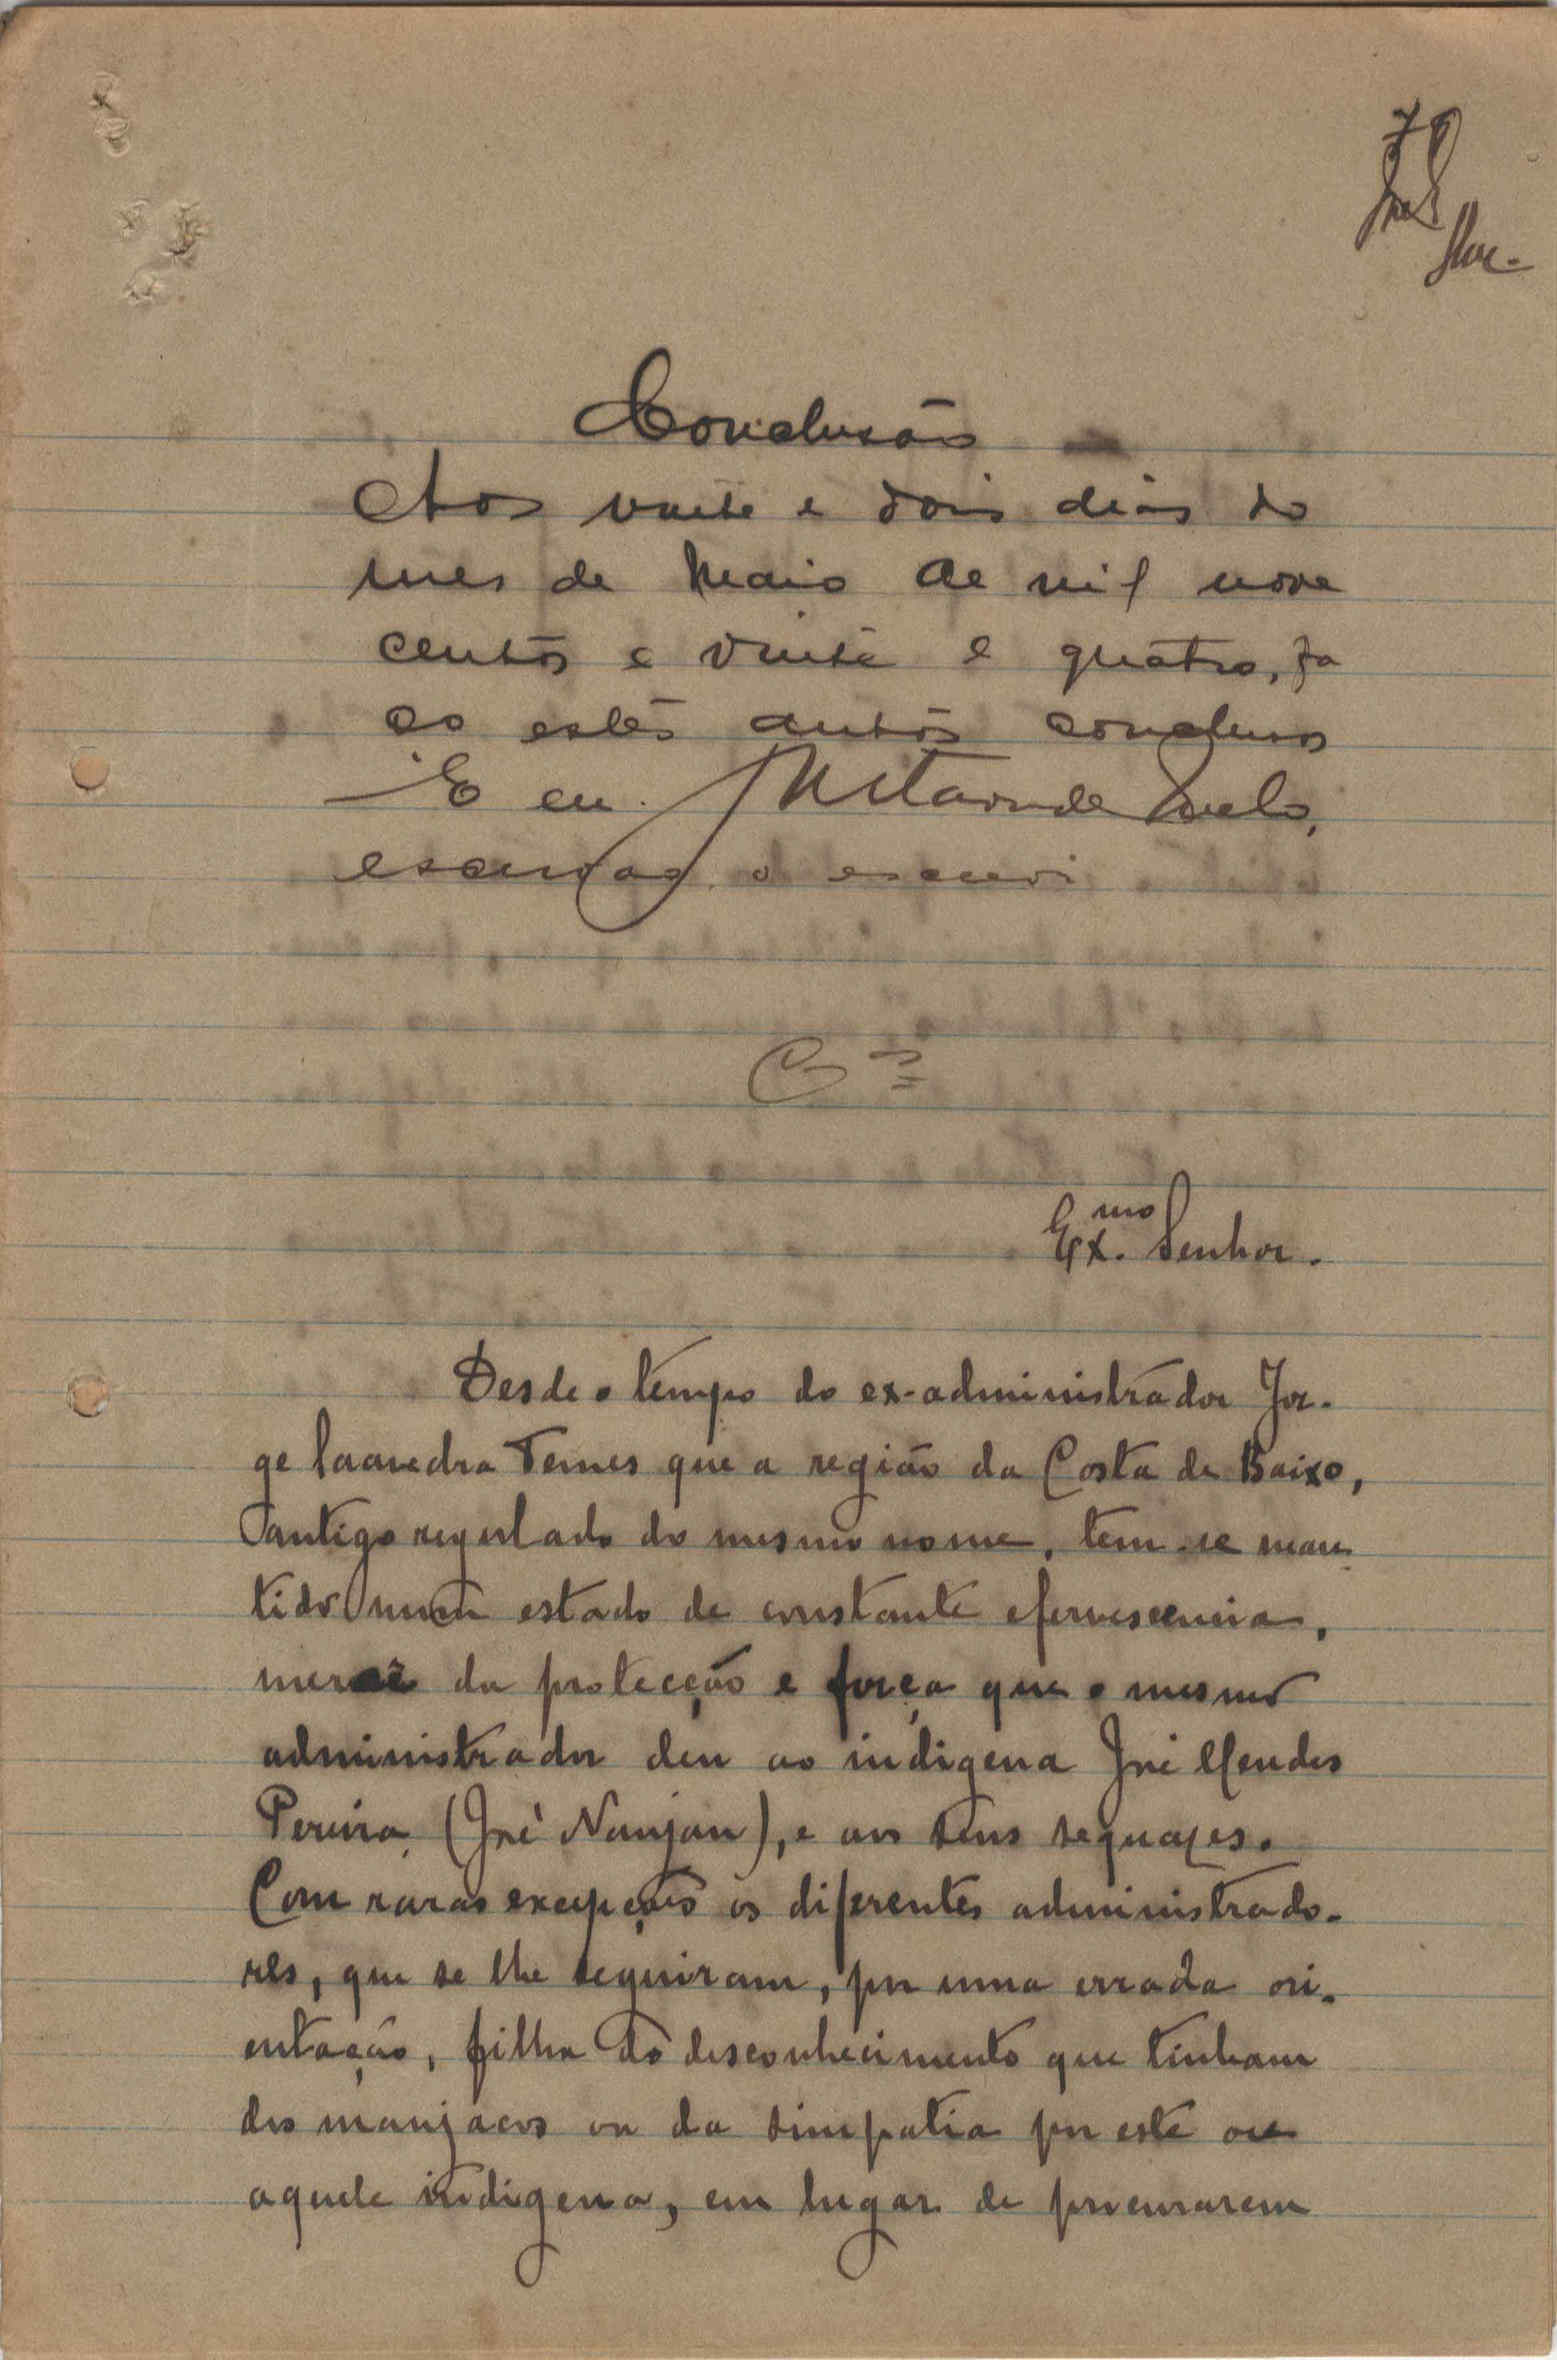 79
Conclusão
Aos vinte e dois dias do
mes de Maio de mil nove
centos e vinte e quatro, fa
ço estes autos conclusos
E eu. de Melo,
escrivão o escrevi
Cos
Ex.mo Senhor.
Desde o tempo do ex-administrador Jor-
ge Saavedra Temes que a região da Costa de Baixo,
antigo regulado do mesmo nome, tem-se man-
tido num estado de constante efervescencia,
mercê da protecção e força que o mesmo
administrador deu ao indigena José Mendes
Pereira (José Nanjan), e aos seus sequazes.
Com raras excepções os diferentes administrado-
res, que se lhe seguiram, por uma errada ori-
entação, filha do desconhecimento que tinham
dos manjacos ou da simpatia por este ou
aquele indigena, em lugar de procurarem